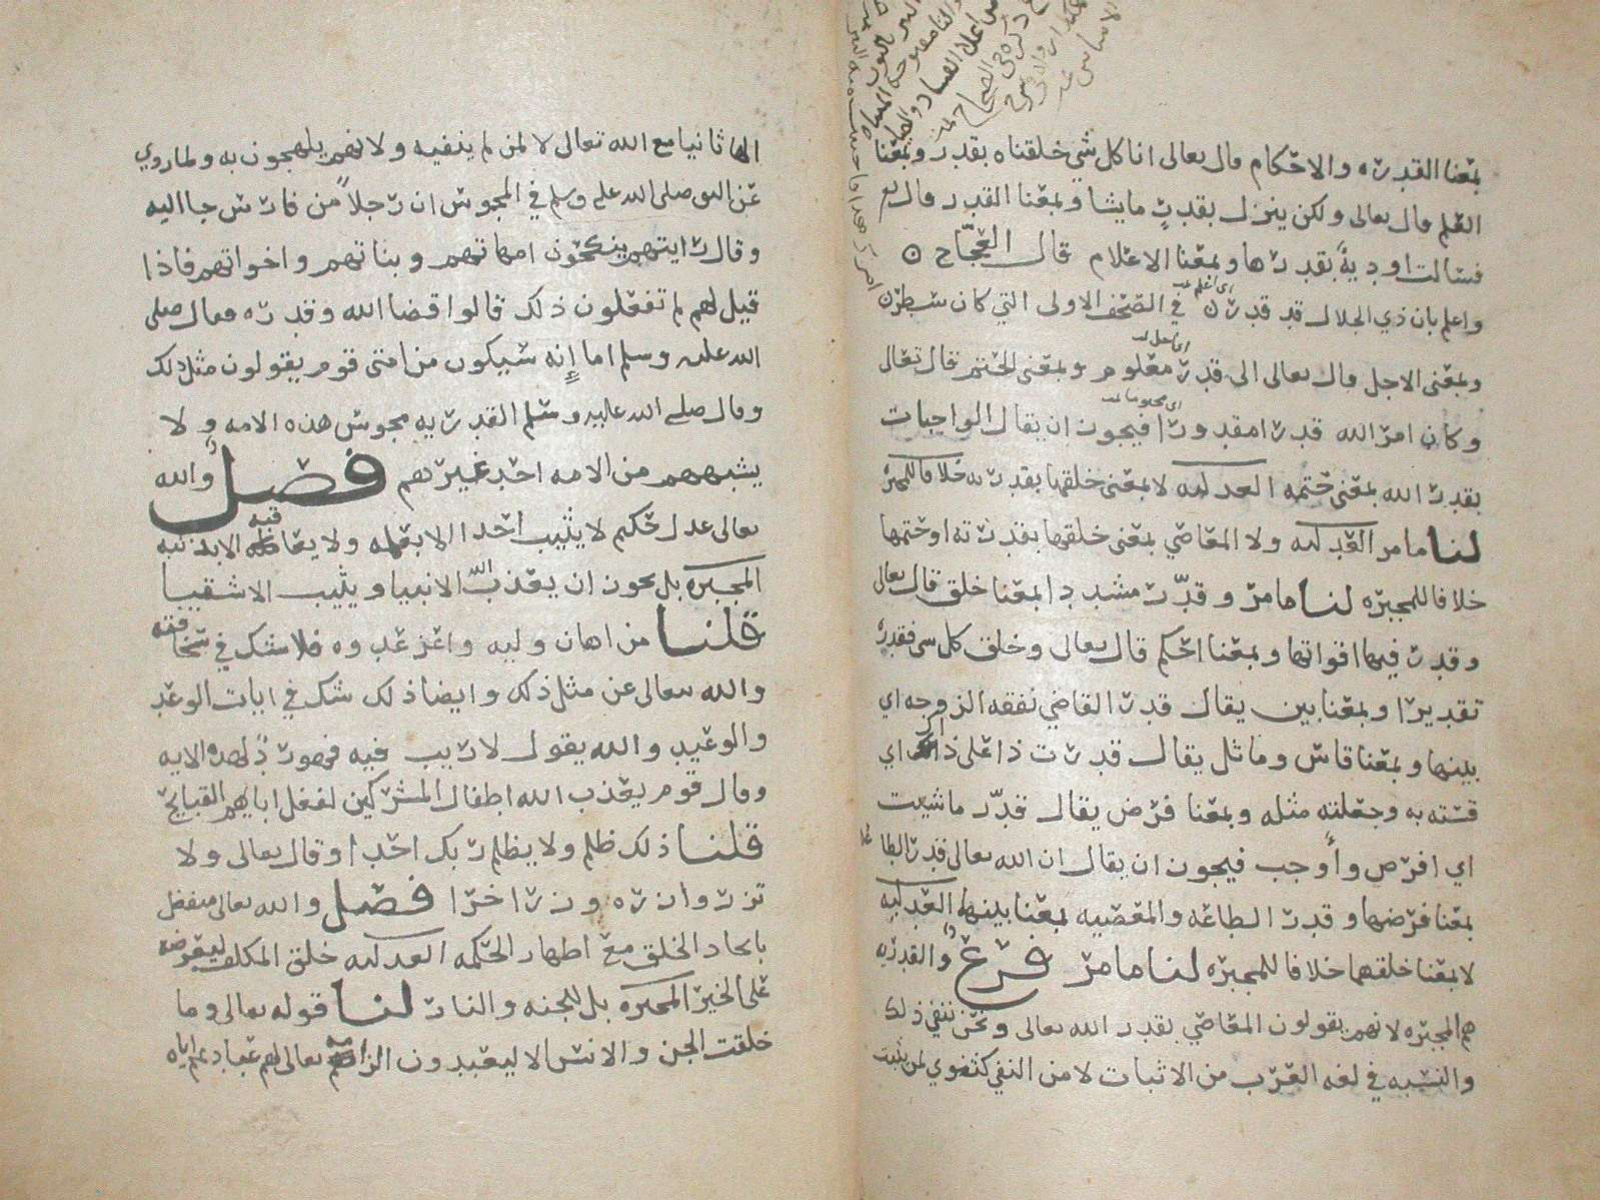 بمعنا القدره والاحكام قال تعالى انا كل شي خلقناه بقدر وبمعنا
العلم قال تعالى ولكن ينزل بقدر ما يشا وبمعنا القدر قال تع
فسالت اودية بقدرها وبمعنا الاعلام قال العجاج
واعلم بان ذي الجلال قد قدر في الصحف الاولى التي كان سطر
وبمعنى الاجل قال تعالى الى قدر معلوم وبمعنى الحتم قال تعالى
وكان امر الله قدرا مقدورا فيجوز ان يقال الواجبات
بقدر الله بمعنى حتمه العدليه لا بمعنى خلقها بقدرته خلافا للمجبره
لنا ما مر العدليه ولا المعاصي بمعنى خلقها بقدرته او حتمها
خلافا للمجبره لنا ما مر وقدّر مشددا بمعنا خلق قال تعالى
وقدر فيها اقواتها وبمعنا احكم قال تعالى وخلق كل شي فقدره
تقديرا وبمعنا بين يقال قدر القاضي نفقه الزوجه اي
بينها وبمعنا قاس وماثل يقال قدرت ذا على ذاك اي
قسته به وجعلته مثله وبمعنا فرض يقال قدّر ما شيت
اي افرض واوجب فيجوز ان يقال ان الله تعالى قدر الطاعه
بمعنا فرضها وقدر الطاعه والمعصيه بمعنا بينها العدليه
لا بمعنا خلقها خلافا للمجبره لنا ما مر فرع والقدريه
هم المجبره لانهم يقولون المعاصي بقدر الله تعالى ونحن ننفي ذلك
والنسبه في لغه العرب من الاثبات لا من النفي كثنوي لمن يثبت
الها ثانيا مع الله تعالى لا لمن لم ينفيه ولانهم يلهجون به ولما روي
عن النبي صلى الله عليه وسلم في المجوس ان رجلاً من فارس جا اليه
وقال رايتهم ينكحون امهاتهم وبناتهم واخواتهم فاذا
قيل لهم لم تفعلون ذلك قالوا قضا الله وقدره فقال صلى
الله عليه وسلم اما إنه سيكون من امتي قوم يقولون مثل ذلك
وقال صلى الله عليه وسلم القدريه مجوس هذه الامه ولا
يشبههم من الامه احد غيرهم فصل والله
تعالى عدل حكيم لا يثيب احدا الا بعمله ولا يعاقبه الا بذنبه
المجبره بل يجوز ان يعذب الله الانبيا ويثيب الاشقيا
قلنا من اهان وليه واعز عدوه فلا شك في سخافته
والله تعالى عن مثل ذلك وايضا ذلك شك في ايات الوعد
والوعيد والله يقول لا ريب فيه فهو رد لهذه الايه
وقال قوم يعذب الله اطفال المشركين لفعل ابايهم القبايح
قلنا ذلك ظلم ولا يظلم ربك احدا وقال تعالى ولا
تزر وازره وزر اخرا فصل والله تعالى متفضل
بايجاد الخلق مع اظهار الحكمه العدليه خلق المكلف ليعرضه
على الخير المجبره بل للجنه والنار لنا قوله تعالى وما
خلقت الجن والانس الا ليعبدون